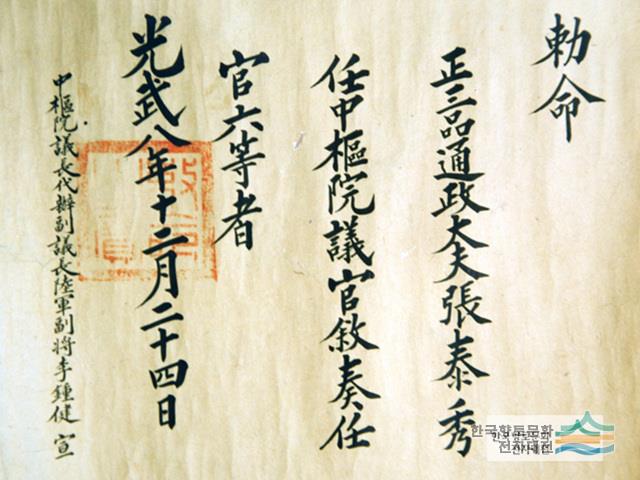 勅命
正三品通政大夫張泰秀
任中樞院議官敘奏任
官六等者
光武八年十二月二十四日
中樞院議長代辦副議長陸軍副將李鍾健 宣
한국향토문화
전자대전